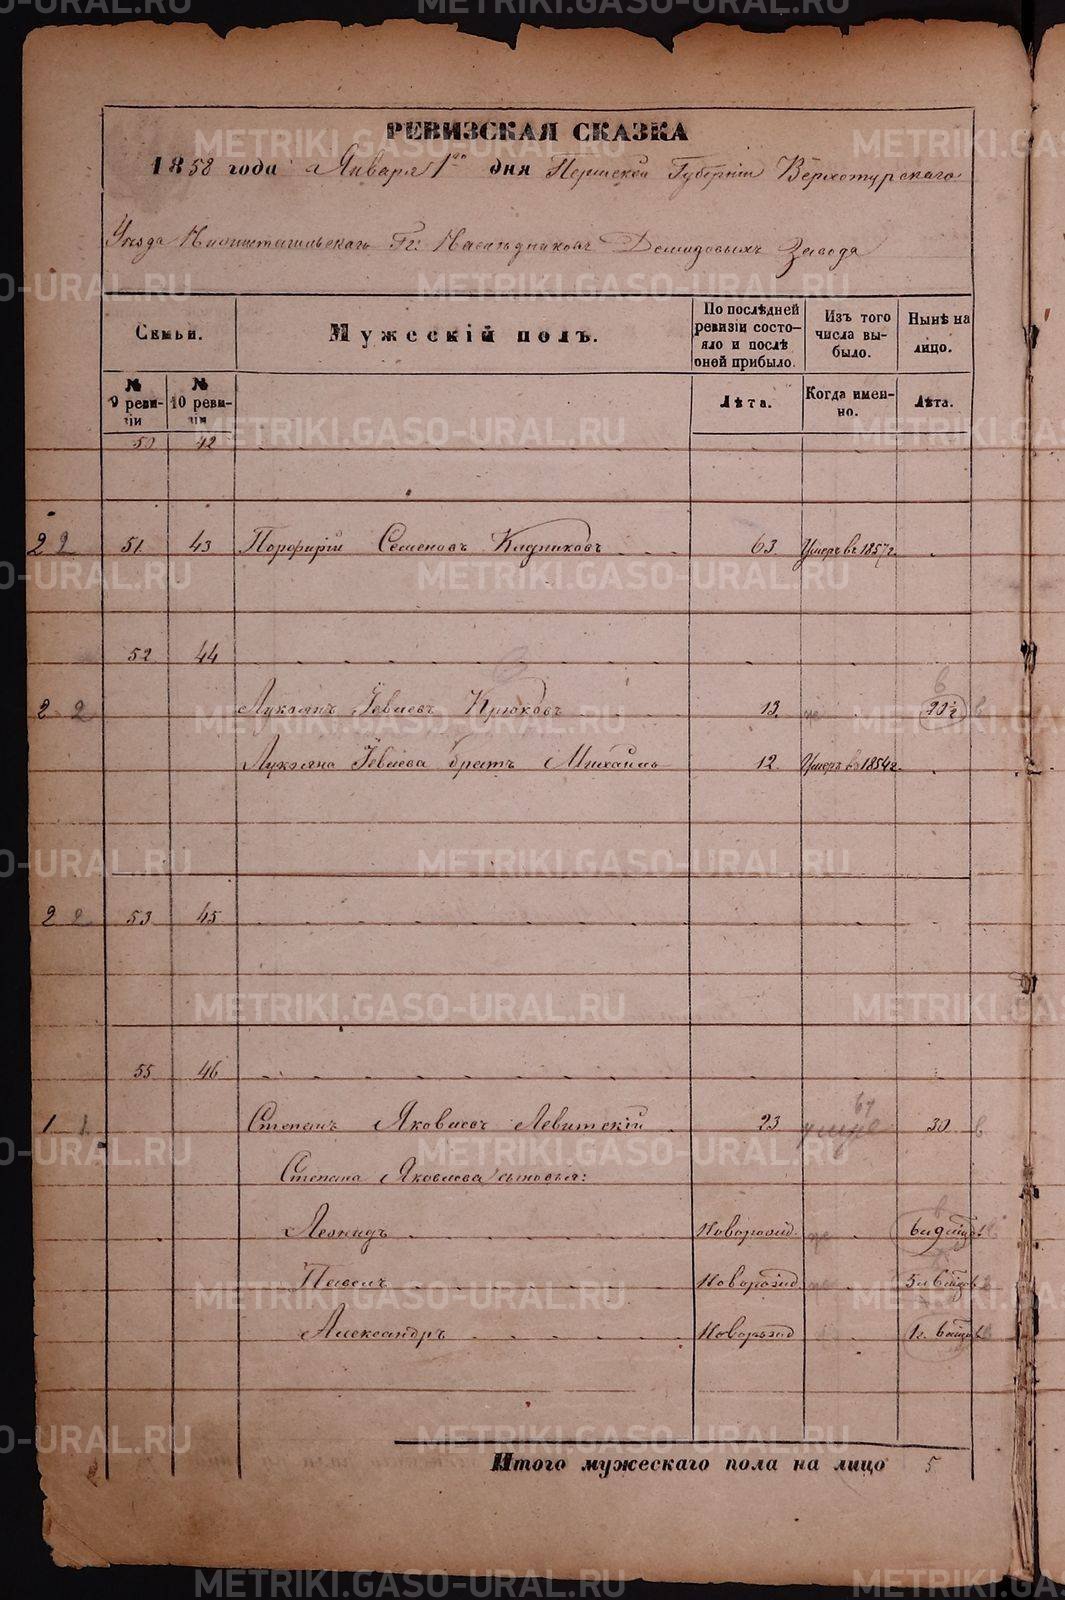 РЕВИЗСКАЯ СКАЗКА
1858 года Января 1го дня Пермской Губернiи Верхотурскаго
Уезда Нижнетагильскаго Гг: Наследниковъ Демидовыхъ Завода
Семьи. Мужескiй полъ. По последней ревизiи состо- яло и после оней прибыло. Изъ того числа вы- было. Ныне на лицо.
№ 9 реви- зiи № 10 реви- зiи Лета. Когда имен- но. Лета.
50 42
2 2 51 43 Порфирiй Семеновъ Кадниковъ 63. Умеръ въ 1857г.
52 44
2 2 Лукоянъ Iевлевъ Крюковъ 13. 20½ в
Лукояна Iевлева братъ Михайлъ 12 Умеръ въ 1854г.
2 2 53 45
55 46
1 1 Степанъ Яковлевъ Левитскiй 23 умре 30 в
Степана Яковлева сыновья:
Леонидъ Новорожд.
Павелъ Новорожд
Александръ Новорожд
Итого мужескаго пола на лицо 5
METRIKI.GASO-URAL.RU